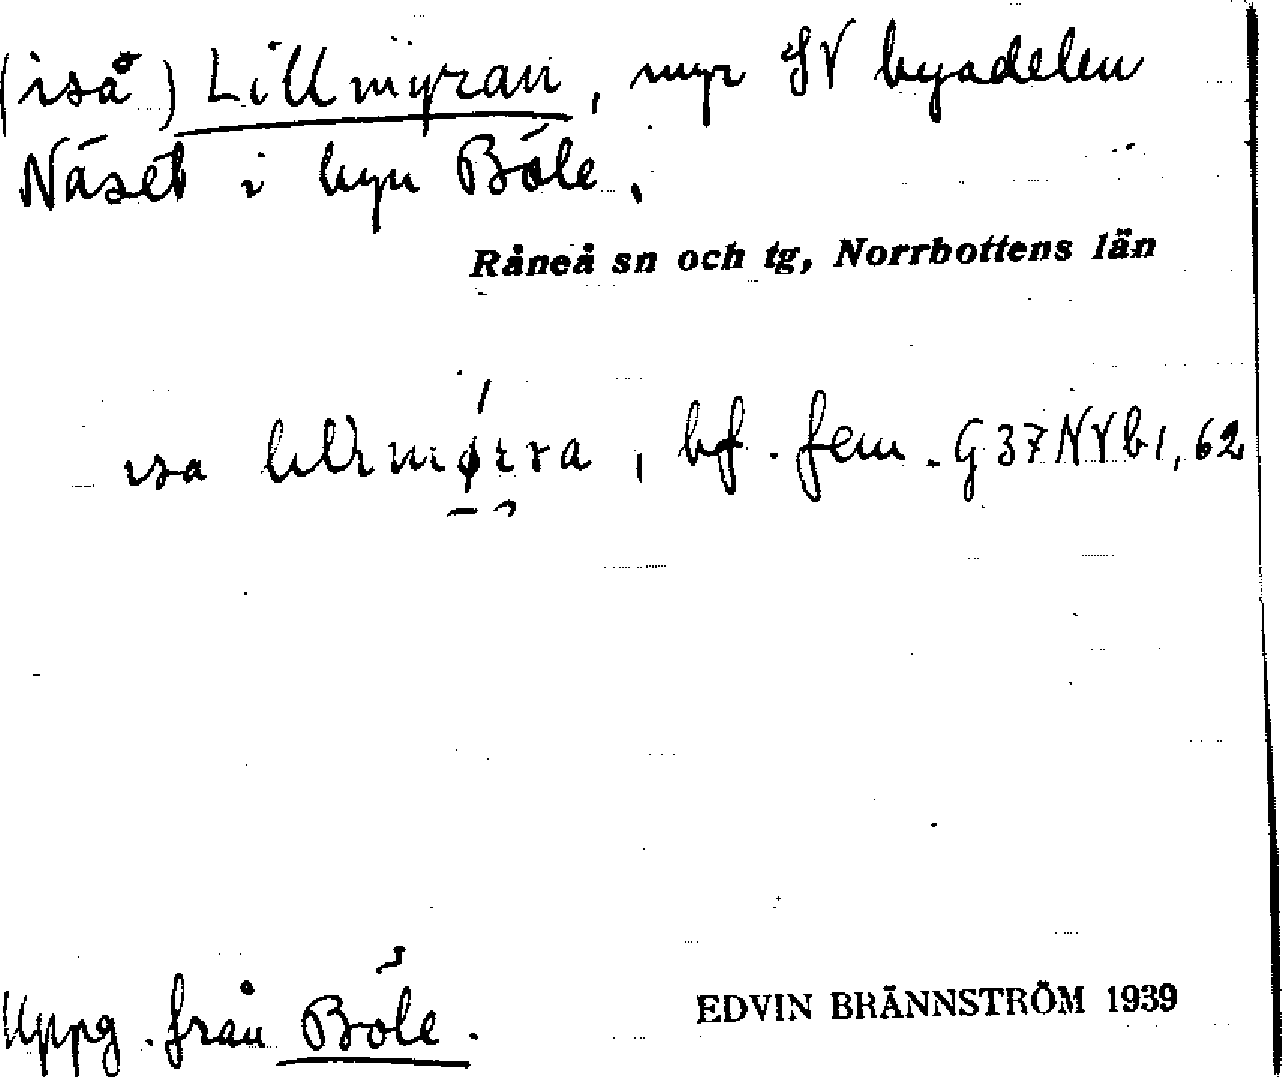 (iså) Lillmyran, myr SV byadelen
Näset i byn Böle.
Råneå sn och tg, Norrbottens län
bf. fem. G37NVb1,62
Uppg. från Böle.
EDVIN BRÄNNSTRÖM 1939